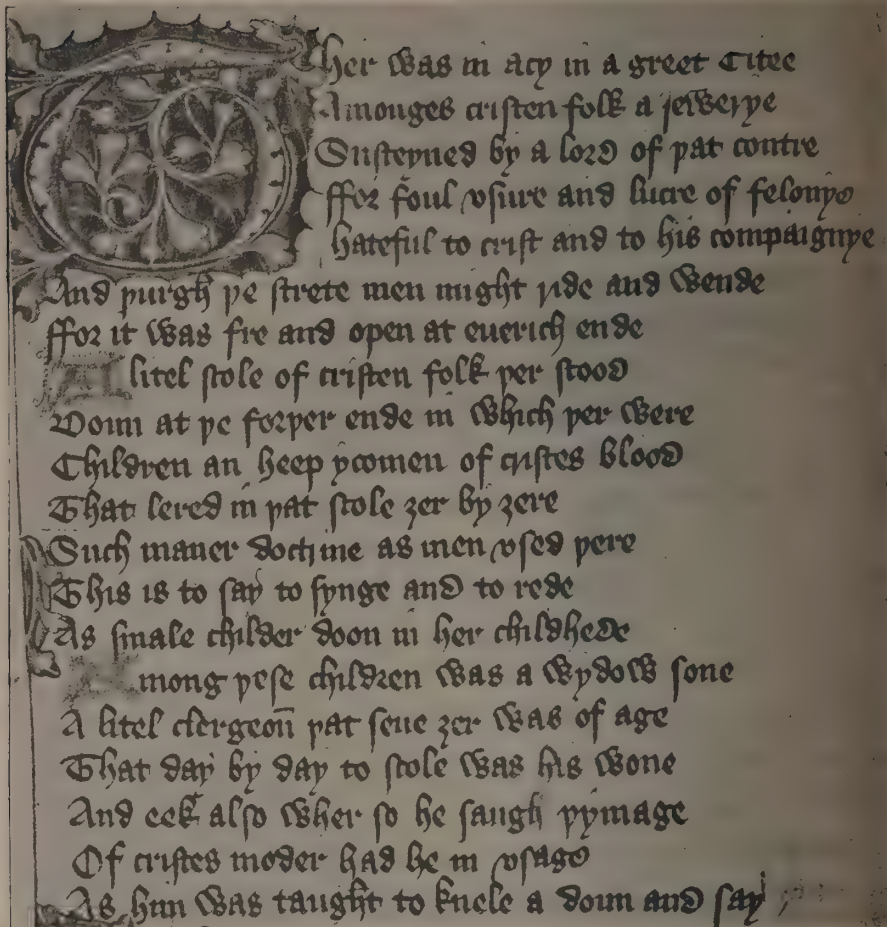 Ther was in acy in a greet Citee
Amonges cristen folk a jewerye
Susteyned by a lord of þat contre
ffor foul vsure and lucre of felonye
hateful to crist and to his compaignye
And þurgh þe strete men might ride and wende
ffor it was fre and open at euerich ende
A litel scole of cristen folk þer stood
Doun at þe forþer ende in which þer were
Children an heep ycomen of cristes blood
That lered in þat scole ȝer by ȝere
Such maner doctrine as men vsed þere
This is to say to synge and to rede
As smale childer doon in her childhede
Among þese children was a wydow sone
A litel clergeoñ þat seue ȝer was of age
That day by day to scole was his wone
And eek also wher so he saugh þymage
Of cristes moder had he in vsage
As him was taught to knele a doun and say